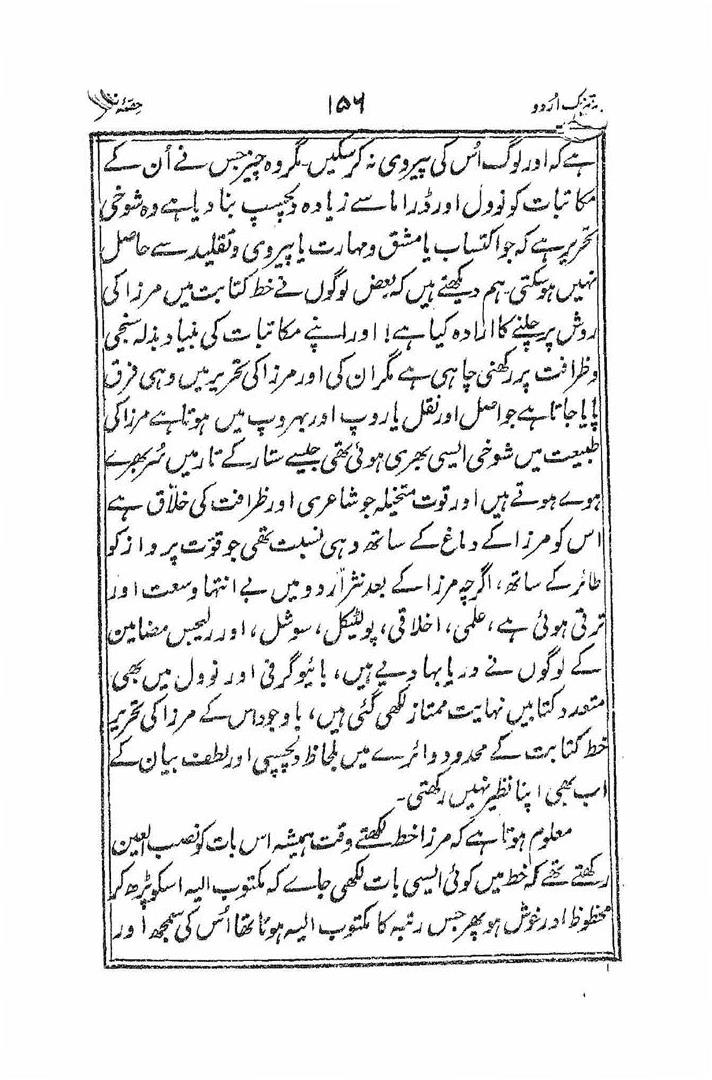 حصۂ ۱۵۶ اُردو
ہے کہ اور لوگ اُس کی پیروی نہ کر سکیں۔ مگر وہ چیز جس نے اُن کے
مکاتبات کو نوول اور ڈراما سے زیادہ دلچسپ بنا دیا ہے وہ شوخی
تحریر ہے کہ جو اکتساب یا مشق و مہارت یا پیروی و تقلید سے حاصل
نہیں ہو سکتی۔ ہم دیکھتے ہیں کہ بعض لوگوں نے خط کتابت میں مرزا کی
روش پر چلنے کا ارادہ کیا ہے! اور اپنے مکاتبات کی بنیاد بذلہ سنجی
و ظرافت پر رکھنی چاہی ہے مگر ان کی اور مرزا کی تحریر میں وہی فرق
پایا جاتا ہے جو اصل اور نقل یا روپ اور بہروپ میں ہوتا ہے مرزا کی
طبیعت میں شوخی ایسی بھری ہوئی تھی جیسے ستار کے تار میں سُر بھرے
ہوے ہوتے ہیں اور قوت متخیلہ جو شاعری اور ظرافت کی خلّاق ہے
اس کو مرزا کے دماغ کے ساتھ وہی نسبت تھی جو قوّت پرواز کو
طائر کے ساتھ، اگرچہ مرزا کے بعد نثر اُردو میں بے انتہا وسعت اور
ترقی ہوئی ہے، علمی، اخلاقی، پولٹیکل، سوشل، اور ریلیجس مضامین
کے لوگوں نے دریا بہا دیے ہیں، بائیوگرفی اور نوول میں بھی
متعدد کتابیں نہایت ممتاز لکھی گئی ہیں، باوجود اس کے مرزا کی تحریر
خط کتابت کے محدود دائرے میں بلحاظ دلچسپی اور لطف بیان کے
اب بھی اپنا نظیر نہیں رکھتی۔
معلوم ہوتا ہے کہ مرزا خط لکھتے وقت ہمیشہ اس بات کو نصب العین
رکھتے تھے کہ خط میں کوئی ایسی بات لکھی جاے کہ مکتوب الیہ اسکو پڑھ کر
محظوظ اور خوش ہو پھر جس رتبہ کا مکتوب الیہ ہوتا تھا اُس کی سمجھ اور